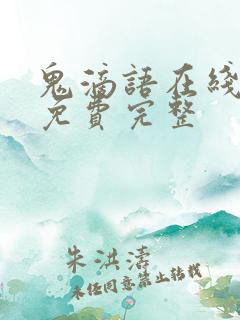 鬼滴語在綫
免費完整
朱洪濤
未經同意禁止轉載